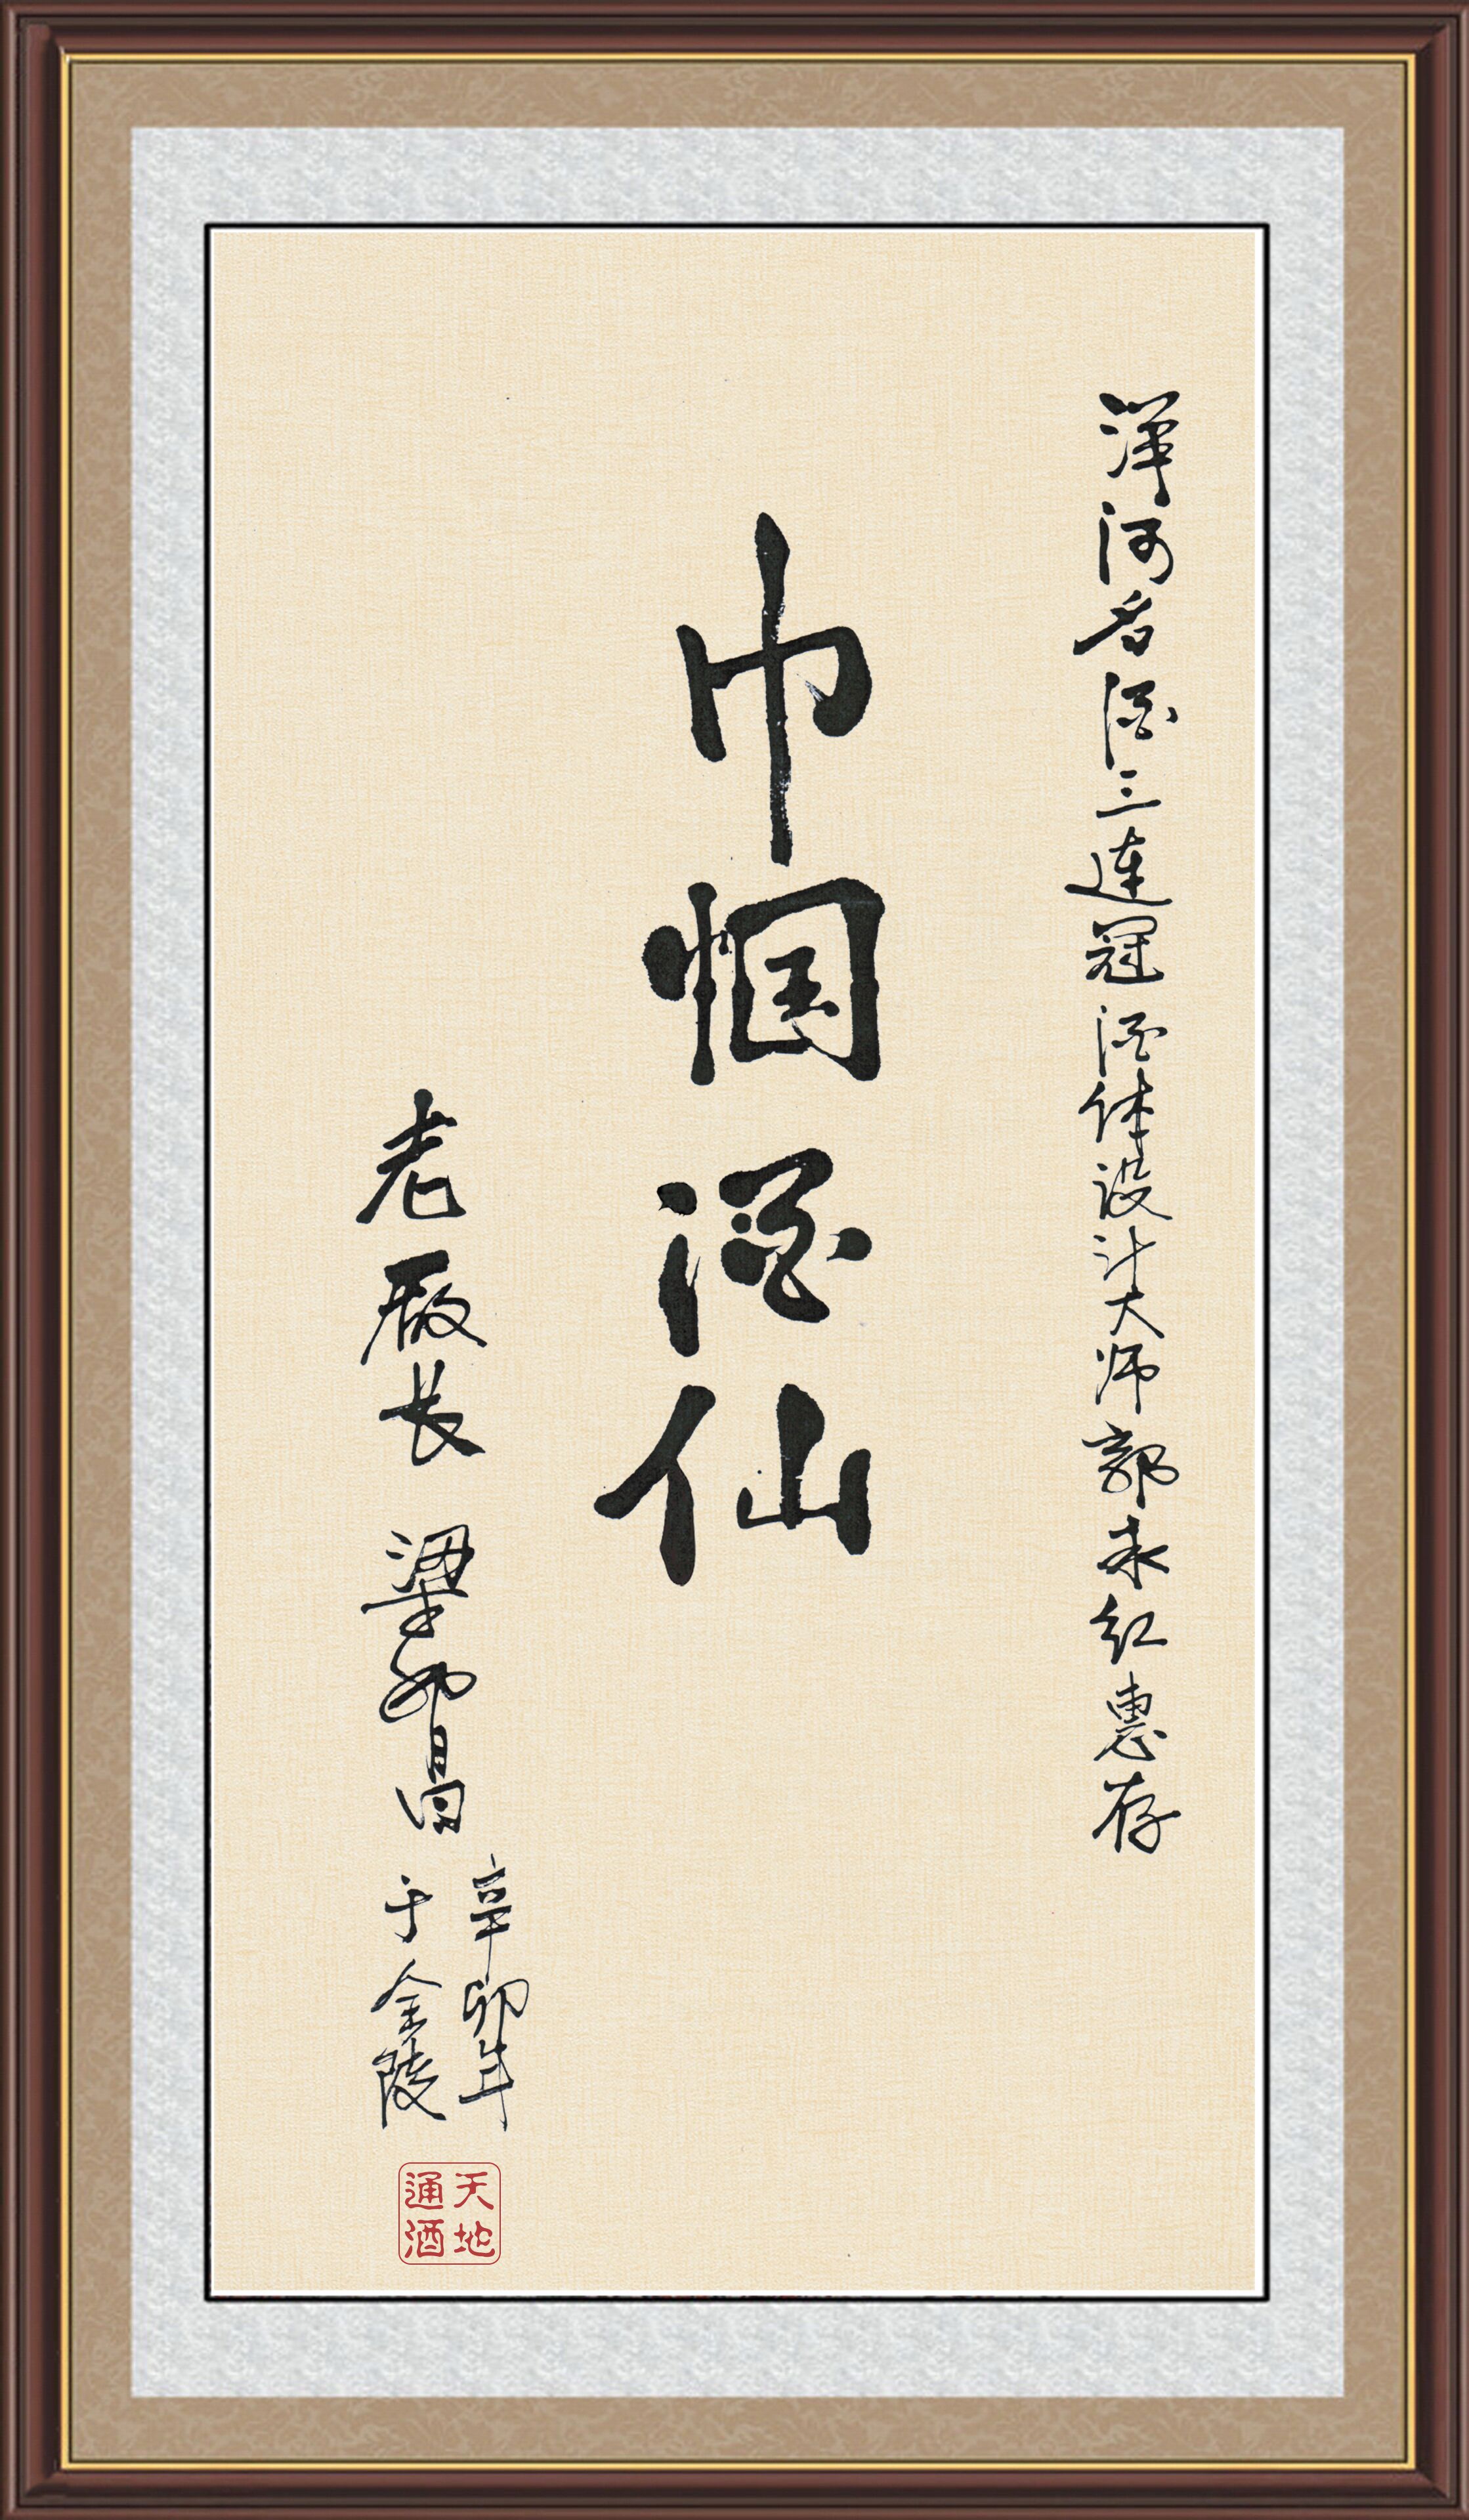 洋河名酒三连冠酒体设计大师郭永红惠存
巾帼酒仙
老厰长 梁邦昌
辛卯年
于金陵
天地
通酒